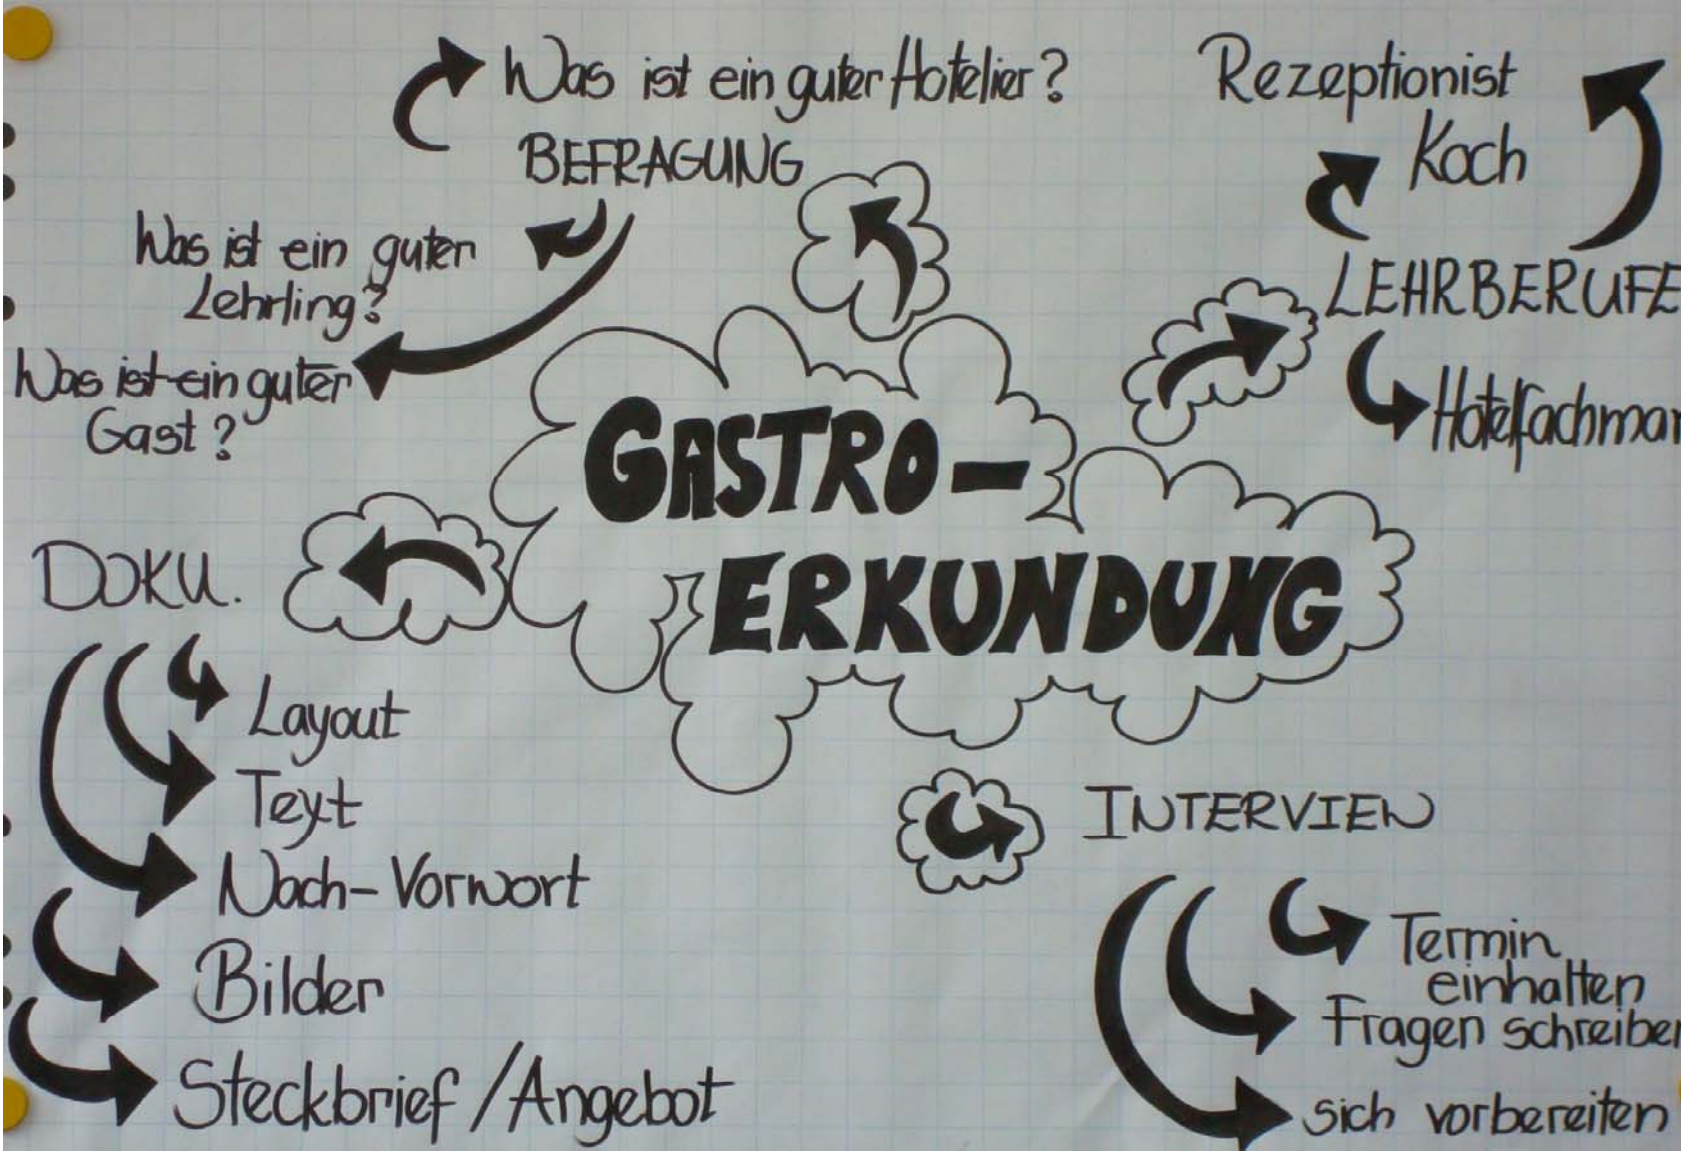 Was ist ein guter Hotelier?
BEFRAGUNG
Was ist ein guter
Lehrling?
Was ist ein guter
Gast?
Rezeptionist
Koch
LEHRBERUFE
Hotelfachman
GASTRO-
ERKUNDUNG
DOKU.
Layout
Text
Nach-Vorwort
Bilder
Steckbrief/Angebot
INTERVIEW
Termin
einhalten
Fragen schreiben
sich vorbereiten